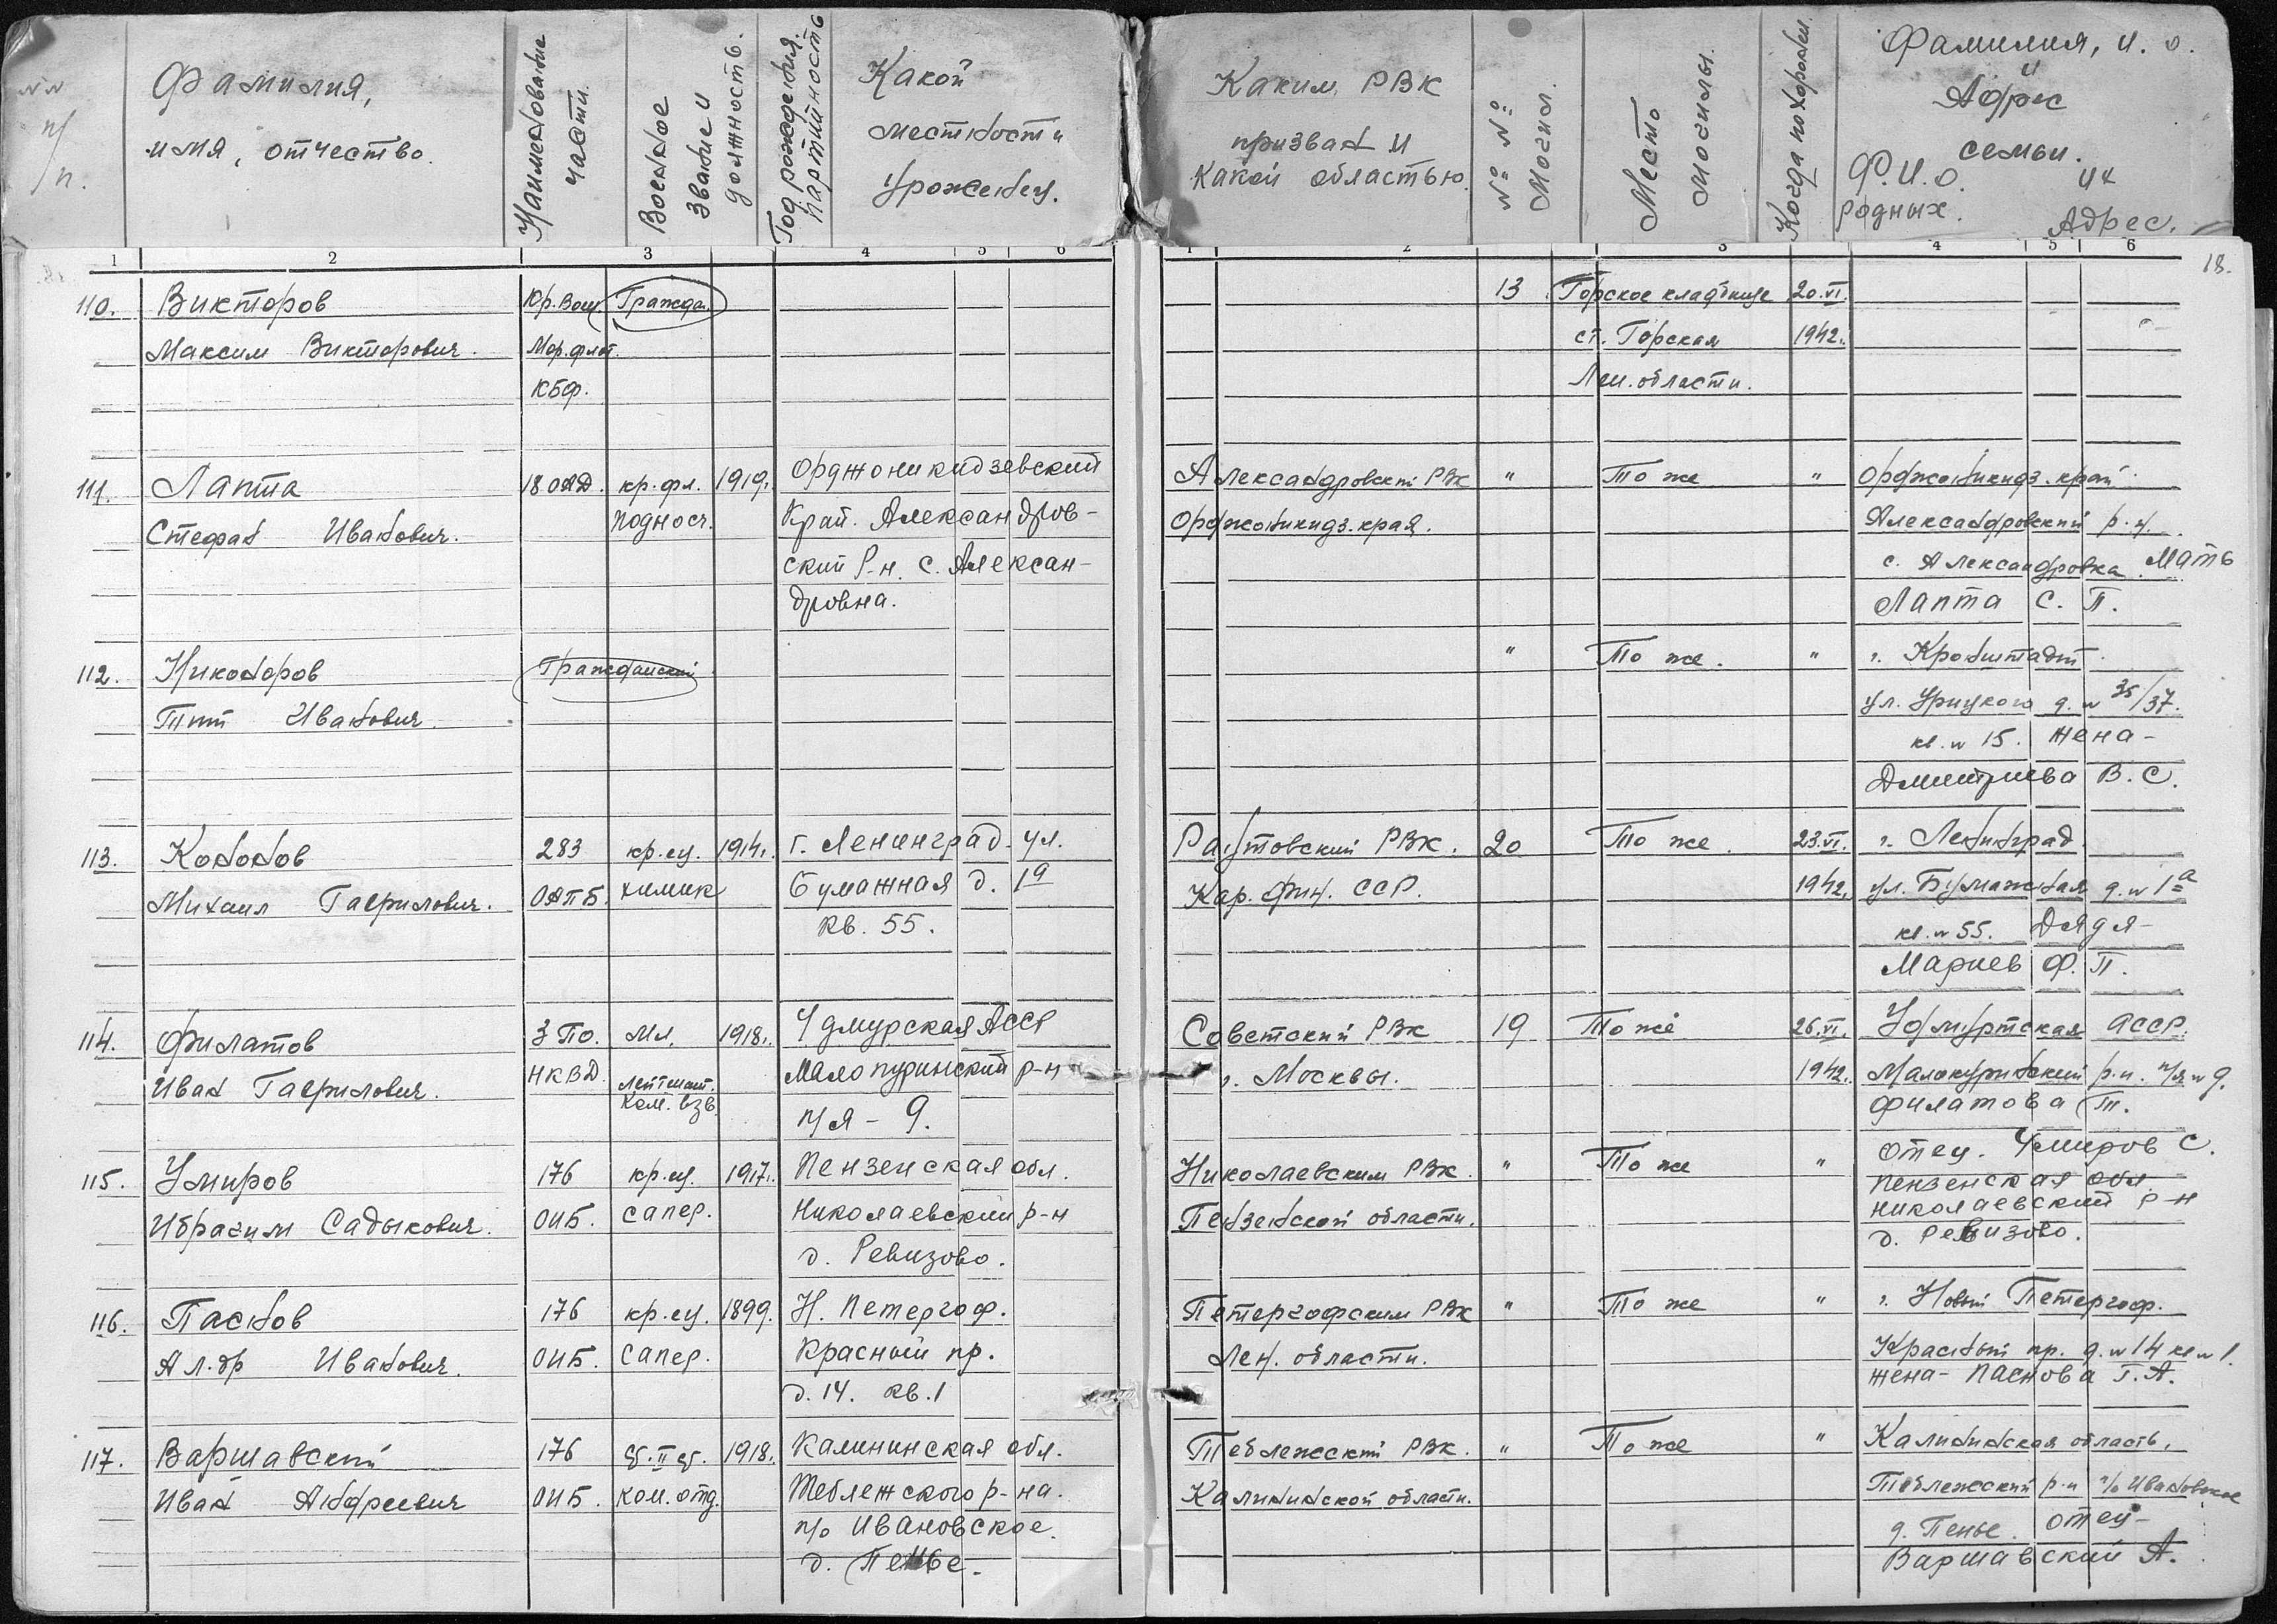 №№ п/п.
Фамилия,
имя, отчество.
Наименование части.
Военное звание и должность.
Год рождения. партийность
Какой
местности
Уроженец.
Каким РВК
призван и
какой областью.
№№ Могил.
Место Могилы.
Когда похоронен.
Фамилия, и. о.
и
Адрес
семьи.
Ф.И.О. их
родных. Адрес.
1 2 3 4 5 6
1 2 3 4 5 6
18.
110. Викторов Кр. Вон. Граждан. 13 Горское кладбище 20.VI.
Максим Викторович. Мор.флот. ст. Горская 1942.
КБФ. Лен. области.
111. Лапта 18 ОАД. кр.фл. 1919. Орджоникидзевский Александровский РВК " То же " Орджоникидз. край.
Стефан Иванович. поднос. Край. Александров- Орджоникидз. края. Александровский р-н.
ский Р-н. с. Алексан- с. Александровка. Мать
дровна. Лапта С. П.
112. Никоноров Гражданский " То же. " г. Кронштадт.
Тит Иванович. ул. Урицкого д. № 35/37.
кв. № 15. жена-
Дмитриева В. С.
113. Кононов 283 кр-ец. 1914. г. Ленинград. ул. Раутовский РВК. 20 То же. 23.VI. г. Ленинград
Михаил Гаврилович. ОАПБ. химик Бумажная д. 1а Кар. Фин. ССР. 1942. ул. Бумажная д. № 1а
кв. 55. кв. № 55. Дядя-
Мариев Ф. П.
114. Филатов 3 ПО. Мл. 1918. Удмурская АССР Советский РВК 19 То же 26.VI. Удмуртская АССР.
Иван Гаврилович. НКВД. лейтенант. Мало пуринский р-н г. Москвы. 1942. Малопуринский р-н. п/я № 9.
Ком. взв. п/я - 9. Филатова Т.
115. Умиров 176 кр-ец. 1917. Пензенская обл. Николаевским РВК. " То же " отец. Умиров С.
Ибрагим Садыкович. ОИБ. сапер. Николаевский р-н Пензенской области. Пензенская обл.
д. Ревизово. Николаевский р-н
д. Ревизово.
116. Паснов 176 кр-ец. 1899. Н. Петергоф. Петергофским РВК " То же " г. Новый Петергоф.
Ал-др Иванович. ОИБ. сапер. Красный пр. Лен. области. Красный пр. д. № 14 кв № 1.
д. 14. кв. 1 жена- Паснова Г. А.
117. Варшавский 176 1918. Калининская обл. Теблежский РВК. " То же " Калининская область.
Иван Андреевич ОИБ. ком. отд. Теблежского р-на. Калининской области. Теблежский р-н п/о Ивановское
п/о Ивановское. д. Пенье. отец-
д. Пенье. Варшавский А.